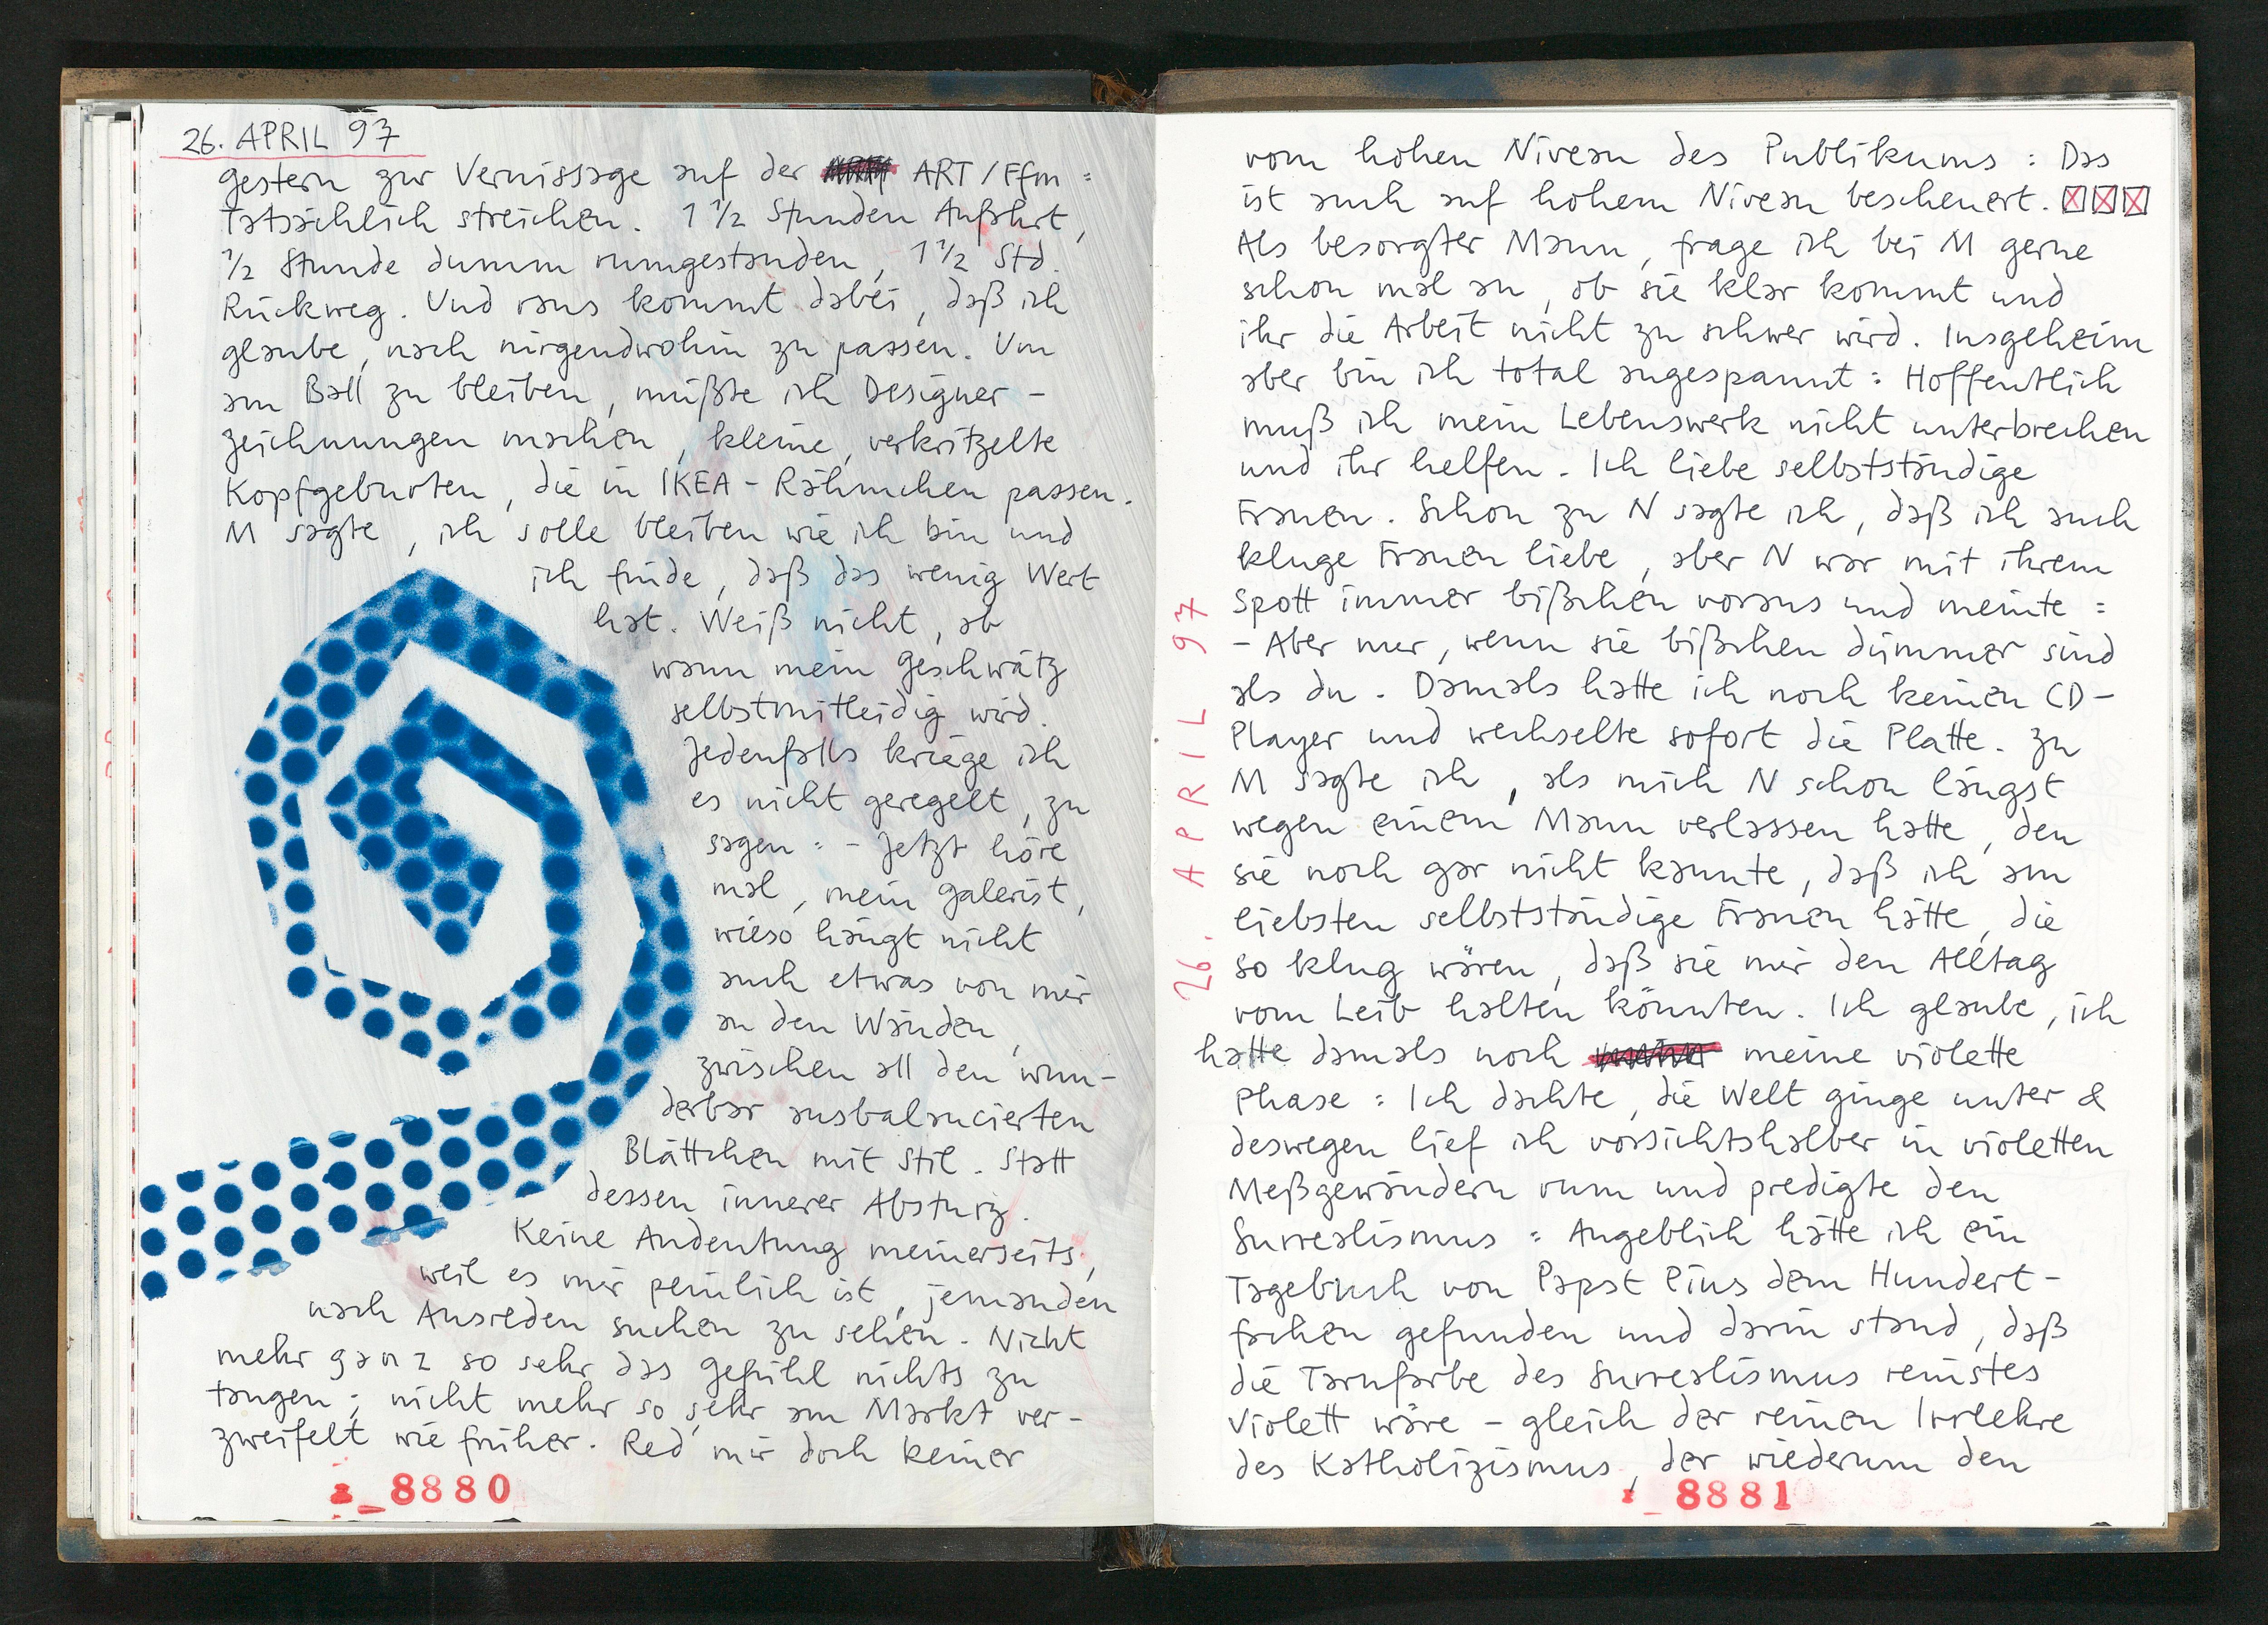 26. APRIL 97
gestern zur Vernissage auf der ART/Ffm:
Tatsächlich streichen. 1 1/2 Stunden Anfahrt,
1/2 Stunde dumm rumgestanden, 1 1/2 Std.
Rückweg. Und raus kommt dabei, daß ich
glaube, nach nirgendwohin zu passen. Um
am Ball zu bleiben, müßte ich Designer-
zeichnungen machen, kleine, verkritzelte
Kopfgeburten, die in IKEA-Rähmchen passen.
M sagte, ich solle bleiben wie ich bin und
ich finde, daß das wenig Wert
hat. Weiß nicht, ab
wann mein Geschwätz
selbstmitleidig wird.
Jedenfalls kriege ich
es nicht geregelt, zu
sagen: - Jetzt höre
mal, mein Galerist,
wieso hängt nicht
auch etwas von mir
an den Wänden,
zwischen all den wun-
derbar ausbalancierten
Blättchen mit Stil. Statt
dessen innerer Absturz.
Keine Andeutung meinerseits,
weil es mir peinlich ist, jemanden
nach Ausreden suchen zu sehen. Nicht
mehr ganz so sehr das Gefühl nichts zu
taugen; nicht mehr so sehr am Markt ver-
zweifelt wie früher. Red mir doch keiner
8880
vom hohen Niveau des Publikums: Das
ist auch auf hohem Niveau bescheuert. ☒☒☒
Als besorgter Mann, frage ich bei M gerne
schon mal an, ob sie klar kommt und
ihr die Arbeit nicht zu schwer wird. Insgeheim
aber bin ich total angespannt: Hoffentlich
muß ich mein Lebenswerk nicht unterbrechen
und ihr helfen. Ich liebe selbstständige
Frauen. Schon zu N sagte ich, daß ich auch
kluge Frauen liebe, aber N war mit ihrem
Spott immer bißchen voraus und meinte:
- Aber nur, wenn sie bißchen dümmer sind
als du. Damals hatte ich noch keinen CD-
Player und wechselte sofort die Platte. Zu
M sagte ich, als mich N schon längst
wegen einem Mann verlassen hatte, den
sie noch gar nicht kannte, daß ich am
liebsten selbstständige Frauen hätte, die
so klug wären, daß sie mir den Alltag
vom Leib halten könnten. Ich glaube, ich
hatte damals noch meine violette
Phase: Ich dachte, die Welt ginge unter &
deswegen lief ich vorsichtshalber in violetten
Meßgewändern rum und predigte den
Surrealismus: Angeblich hätte ich ein
Tagebuch von Papst Pius dem Hundert-
fachen gefunden und darin stand, daß
die Tarnfarbe des Surrealismus reinstes
Violett wäre - gleich der reinen Irrlehre
des Katholizismus, der wiederum den
8881
26. APRIL 97